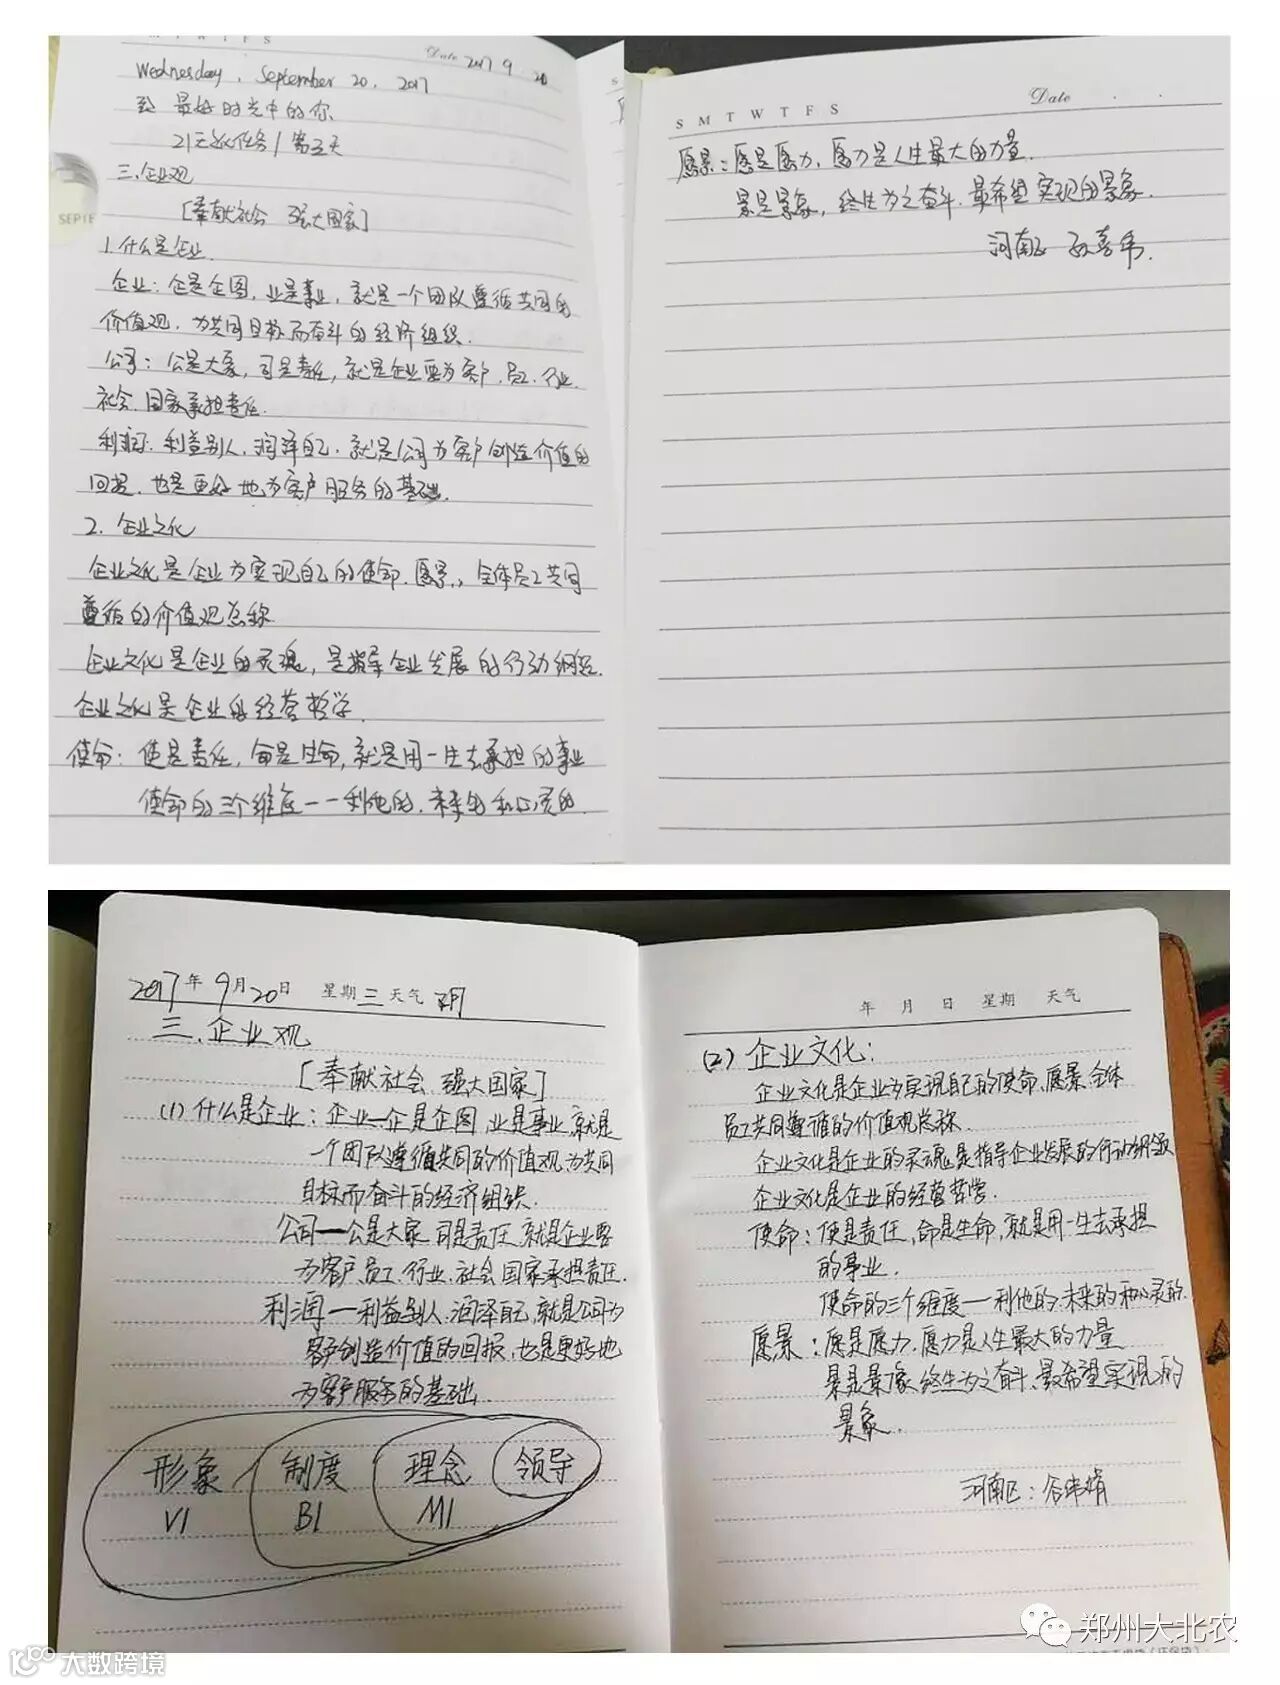 S M T W T F S
Date 2017 9 . 20
Wednesday, September 20, 2017
致 最好时光中的你
21天 任务/第五天
三.企业观
SEPTE
[奉献社会 强大国家]
1.什么是企业.
企业:企是企图,业是事业,就是一个团队遵循共同的
价值观,为共同目标而奋斗的经济组织.
公司:公是大家,司是责任,就是企业要为客户.员工.行业.
社会.国家承担责任.
利润:利益别人,润泽自己.就是公司为客户创造价值的
回报.也是更好地为客户服务的基础.
2.企业文化
企业文化是企业为实现自己的使命.愿景,,全体员工共同
遵循的价值观总称
企业文化是企业的灵魂,是指导企业发展的行动纲领.
企业文化是企业的经营哲学.
使命:使是责任,命是生命,就是用一生去承担的事业
使命的三个维度——利他的.未来的和心灵的.
S M T W T F S
Date
愿景:愿是愿力,愿力是人生最大的力量.
景是景象,终生为之奋斗.最希望实现的景象.
河南区 孙喜伟.
2017年9月20日 星期三 天气 阴
三.企业观
[奉献社会 强大国家]
(1)什么是企业:企业—企是企图,业是事业,就是
一个团队遵循共同的价值观,为共同
目标而奋斗的经济组织.
公司—公是大家 司是责任,就是企业要
为客户.员工.行业.社会.国家承担责任.
利润—利益别人.润泽自己,就是公司为
客户创造价值的回报,也是更好地
为客户服务的基础.
形象 制度 理念 领导
VI BI MI
年 月 日 星期 天气
(2)企业文化:
企业文化是企业为实现自己的使命.愿景,全体
员工共同遵循的价值观总称.
企业文化是企业的灵魂,是指导企业发展的行动纲领
企业文化是企业的经营哲学.
使命:使是责任,命是生命,就是用一生去承担
的事业.
使命的三个维度—利他的.未来的和心灵的.
愿景:愿是愿力,愿力是人生最大的力量
景是景像,终生为之奋斗,最希望实现的
景象.
河南区:谷伟娟
郑州大北农
10100 大数跨境